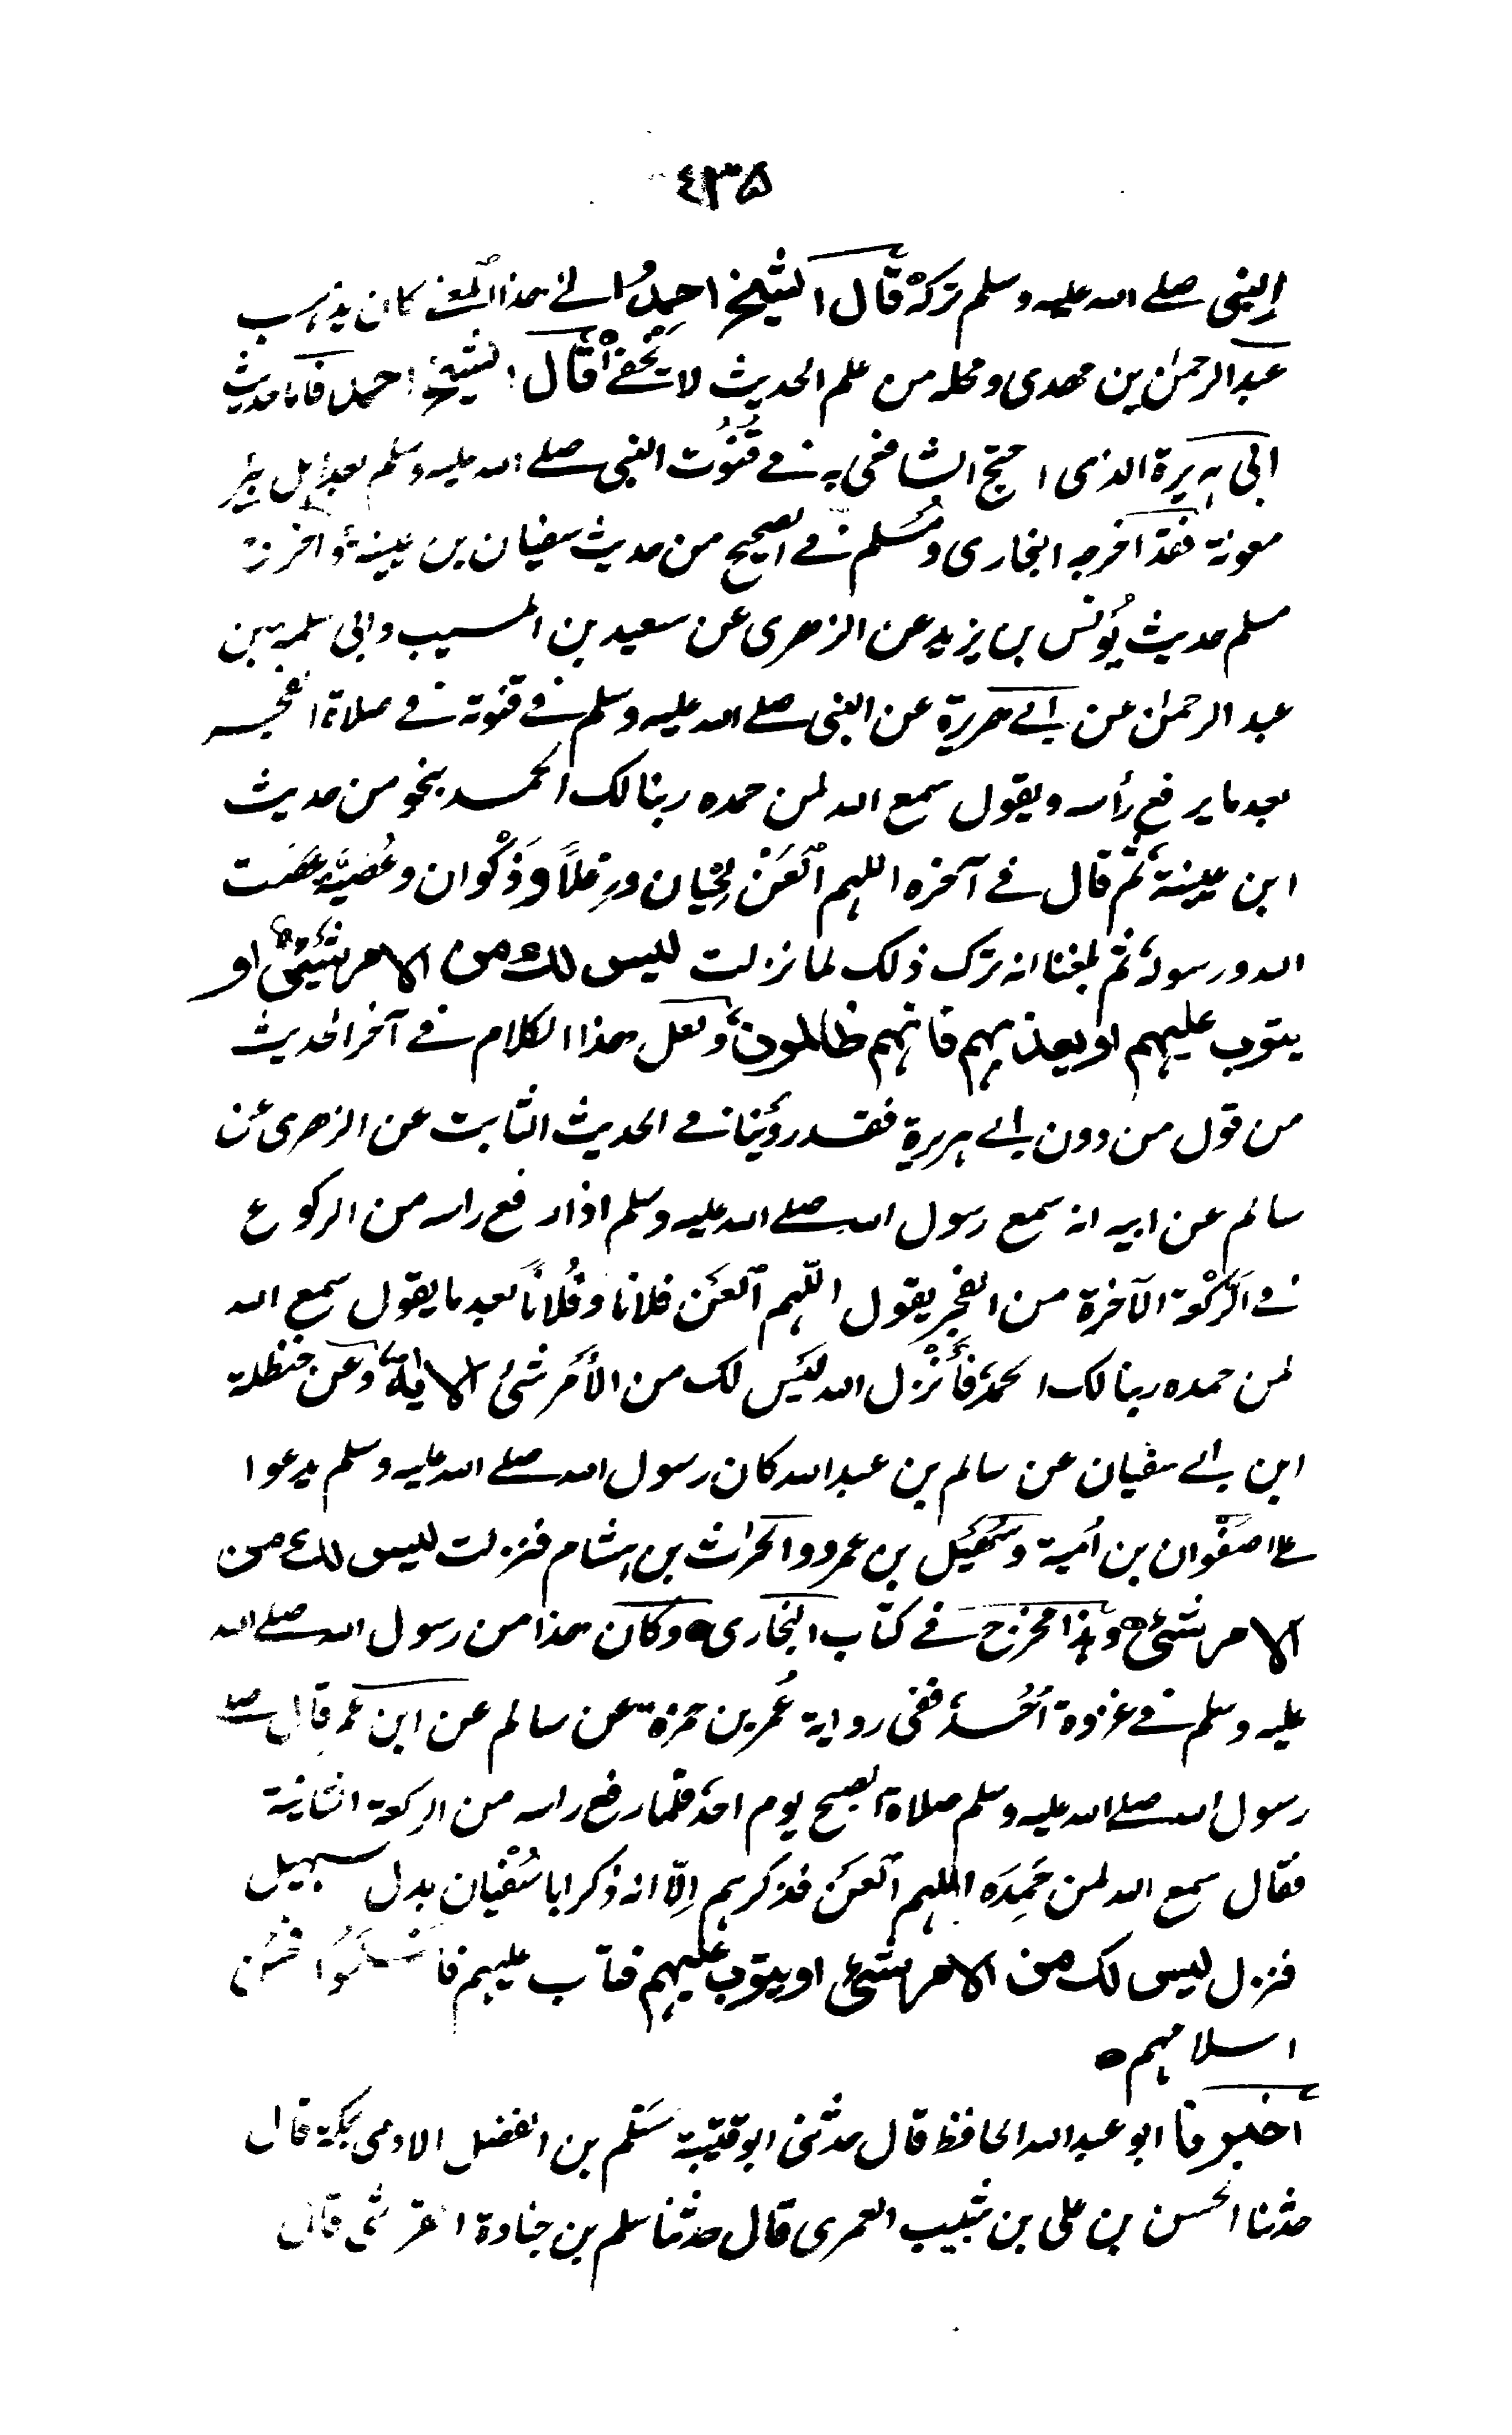 ٤٣۵
النبى صلے الله عليه وسلم تركه قال الشيخ احمدُ والے هذا المعنے كان يذہب
عبد الرحمٰن بن مهدى ومحله من علم الحديث لا يخْفےٰ قال الشيخ احمد فاما حديث
ابى ہريرة الذى احتج الشافعى به فے قُنُوت النبى صلے الله عليه وسلم بعد اہل بير
معونة فقد اخرجه البخارى ومُسلم فے الصحيح من حديث سفيان بن عيينة واخرجه
مسلم حديث يُونس بن يزيد عن الزهرى عن سعيد بن المسيب وابى سلمة بن
عبد الرحمٰن عن ابے هريرة عن النبى صلے الله عليه وسلم فے قنوته فے صلاة الفجر
بعد ما يرفع رأسه ويقول سمع الله لمن حمده ربنا لك الحمد بنحو من حديث
ابن عيينة ثم قال فے آخره اللہم الْعَنْ لِحْيان ورِعْلاً وذَكْوان وعُصَيَّة عصَت
الله ورسوله ثم بلغنا انه ترك ذلك لما نزلت ليس لك من الامر شَيْئٌ او
يتوب عليہم او يعذبہم فانہم ظالمون ولعل هذا الكلام فے آخر الحديث
من قول من دون ابے ہريرة فقد رُوّينا فے الحديث الثابت عن الزهرى عن
سالم عن ابيه انه سمع رسول الله صلے الله عليه وسلم اذا رفع راسه من الركوع
فے الرَّكْعة الآخرة من الفجر يقول اللّہم الْعَن فلانا وفُلاناً بعد ما يقول سمع الله
لمن حمده ربنا لك الحمدُ فأَنْزل الله لَيْس لك من الأَمْر شئ الاية وعن حنظلة
ابن ابے سفيان عن سالم بن عبد الله كان رسول الله صلے الله عليه وسلم يدعوا
علے صفْوان بن اُمية وسُهَيْل بن عمرو والحراث بن ہشام فنزلت ليس لك من
الامر شئ وہذا مخرج فے كتاب البخارى وكان هذا من رسول الله صلے الله
عليه وسلم فے غزوة اُحُد ففى رواية عُمر بن حمزة عن سالم عن ابن عمر قال صلے
رسول الله صلے الله عليه وسلم صلاة الصبح يوم احد فلما رفع راسه من الركعة الثانية
فقال سمع الله لمن حَمِدَه اللہم الْعَن فذكرہم اِلّا انه ذكر ابا سُفْيان بدل سہيل
فنزل ليس لك من الامر شئ او يتوب عليہم فتاب عليہم فأسْلَمُوا فحسُن
اسلامہم
اخبرنا ابو عبد الله الحافظ قال حدثنى ابو قتيبة سَلم بن الفضل الادمى بمكة قال
حدثنا الحسن بن على بن شبيب العمرى قال حدثنا سلم بن جنادة القرشى قال